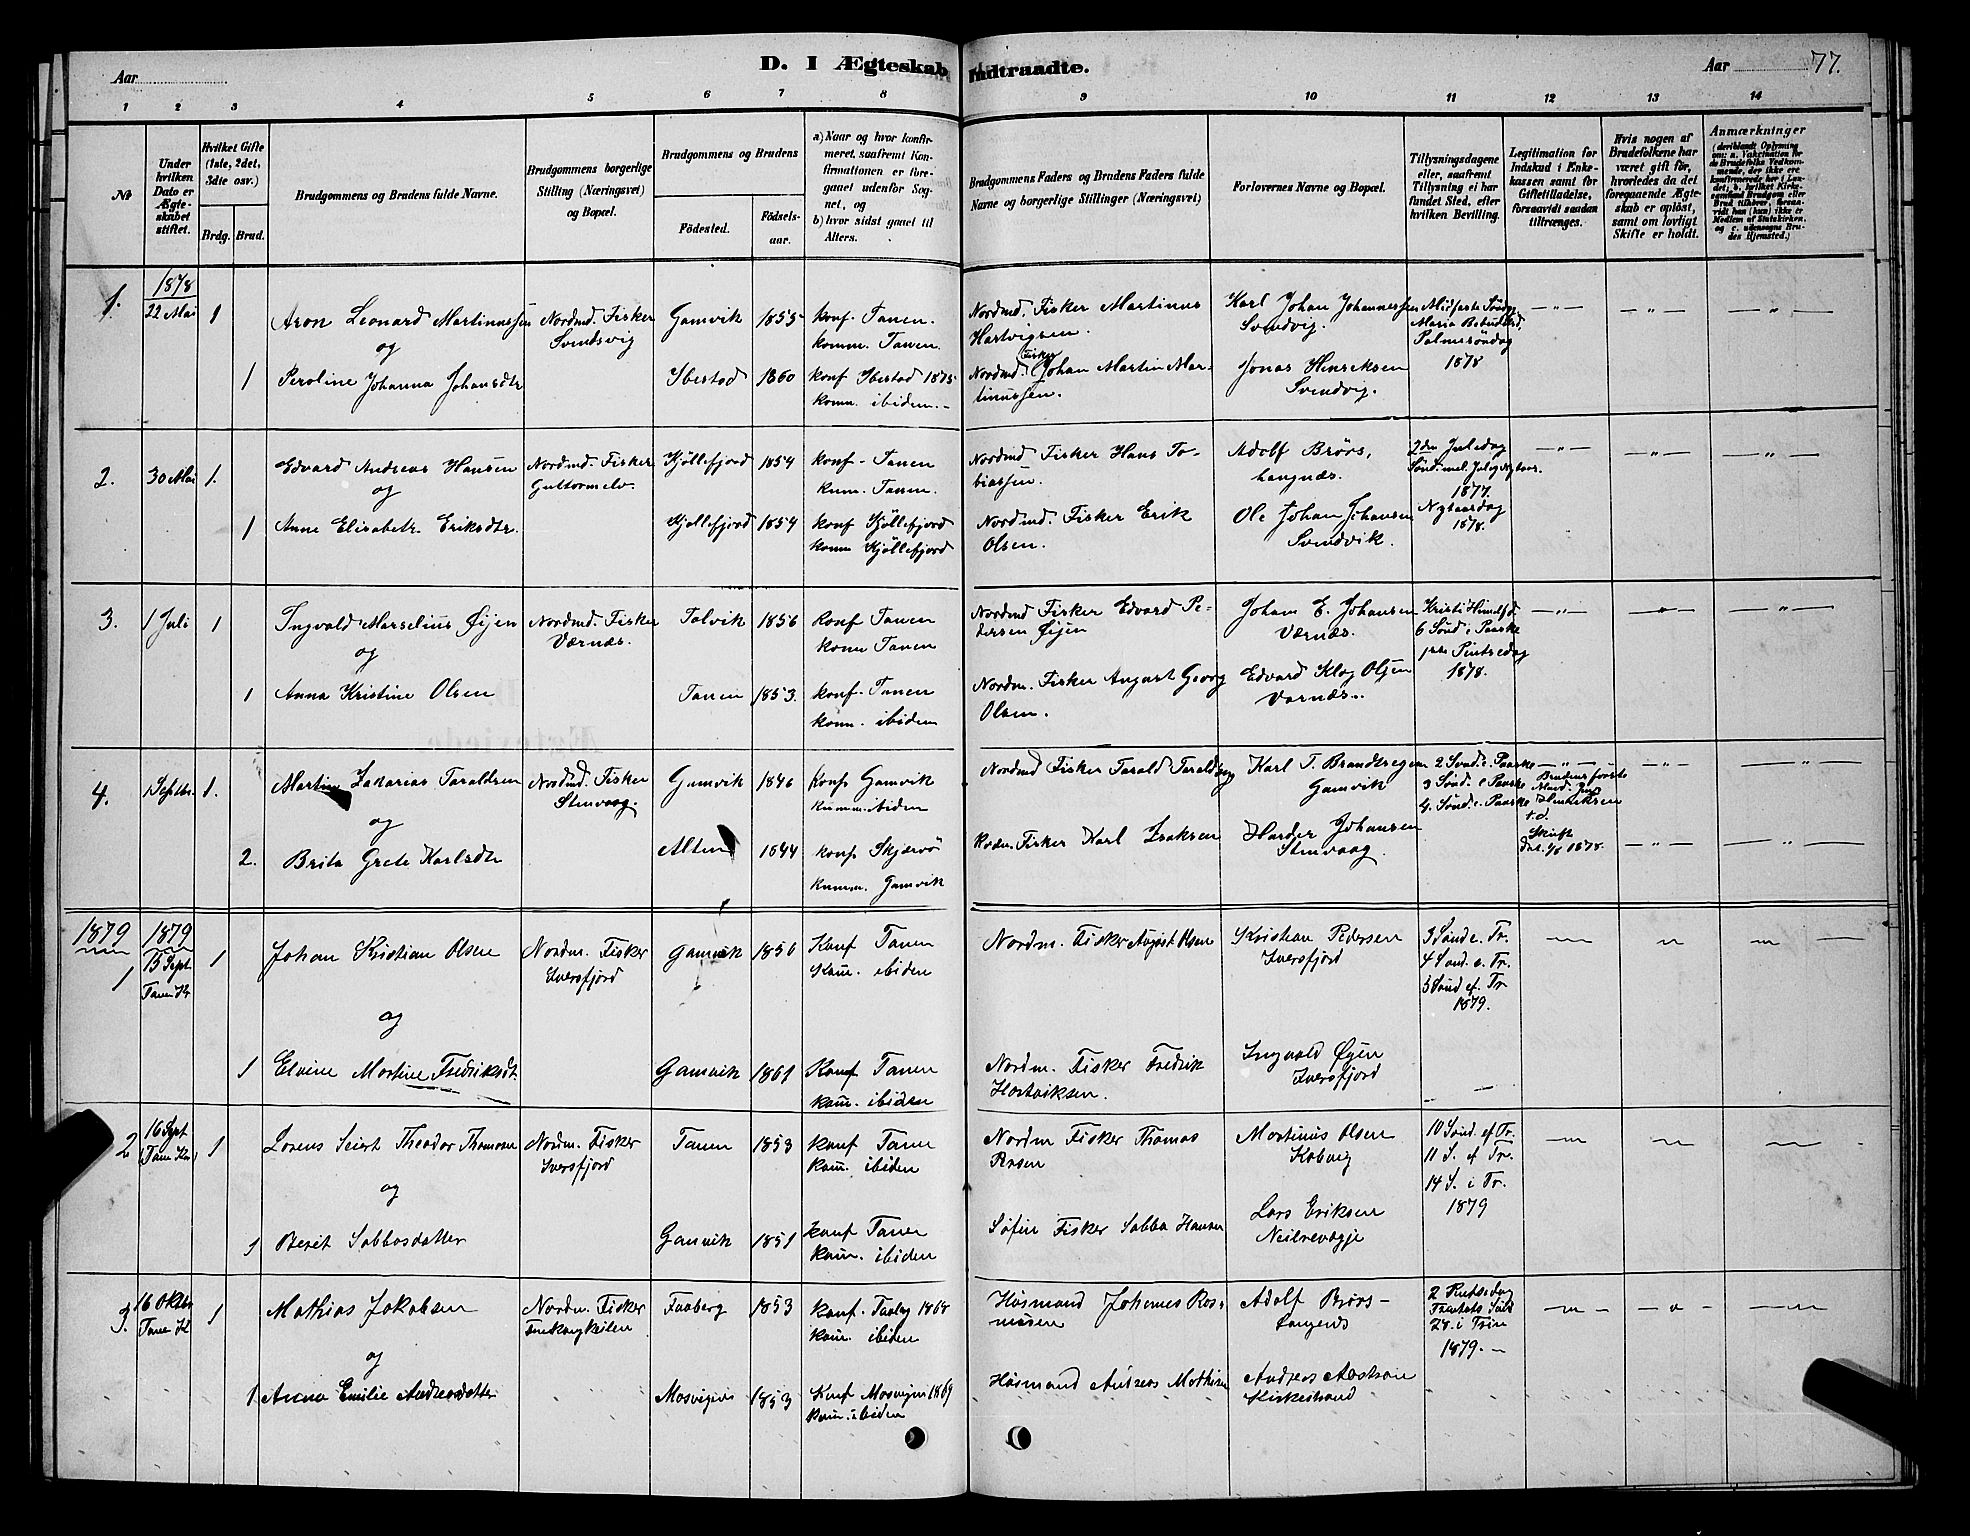 D. I Ægteskab Indtraadte.
Aar
Aar 77.
1 2 3 4 5 6 7 8 9 10 11 12 13 14
№
Under hvilken Dato er Ægteskabet stiftet.
Hvilket Gifte (1ste, 2det, 3die osv.)
Brdg. Brud.
Brudgommens og Brudens fulde Navne.
Brudgommens borgerlige Stilling (Næringsvei) og Bopæl.
Brudgommens og Brudens
Födested.
Födselsaar.
a) Naar og hvor konfirmeret, saafremt Konfirmationen er foregaaet udenfor Sognet, og
b) hvor sidst gaaet til Alters.
Brudgommens Faders og Brudens Faders fulde Navne og borgerlige Stillinger (Næringsvei)
Forlovernes Navne og Bopæl.
Tillysningsdagene eller, saafremt Tillysning ei har fundet Sted, efter hvilken Bevilling.
Legitimation for Indskud i Enkekassen samt for Giftetilladelse, forsaavidt saadan tiltrænges.
Hvis nogen af Brudefolkene har været gift för, hvorledes da det foregaaende Ægteskab er oplöst, samt om lovligt Skifte er holdt.
Anmærkninger
1. 1878
22 Mai 1 Aron Leonard Martinussen Nordmd. Fisker Svendsvig Gamvik 1855 konf Tanen. komm. Tanen. Nordmd. Fisker Martinus Hartvigsen. Karl Johan Johannessen Svendvig. Midfaste Söndag Maria Bebud.Dd. Palmesöndag 1878 — " — — " — — " —
og
1 Peroline Johanna Johansdtr Ibestad 1860 konf Ibestad 1875 komm. ibidem.- Nordmd. Fisker Johan Martin Martinussen. Jonas Henriksen Svendvig.
2. 30 Mai 1. Edvard Andreas Hansen Nordmd. Fisker Guttormelv. Kjöllefjord 1854 konf- Tanen kom. Tanen. Nordmd Fisker Hans Tobiassen. Adolf Brörs, Langnæs. 2den Juledag 1877. Nytaarsdag 1878. — " — — " — — " —
og
1 Anne Elisabetr. Eriksdtr. Kjöllefjord 1854 konf Kjöllefjord komm Kjöllefjord Nordmd. Fisker Erik Olsen. Ole Johan Johansen Svendvik.
3. 1 Juli 1 Ingvald Marselius Øijen Nordmd. Fisker Værnæs. Talvik 1856 Konf Tanen komm Tanen Nordmd Fisker Edvard Pedersen Øijen Johan E. Johansen Værnæs. Kristi Himlfd. 6 Sönd e Paaske 1ste Pintsedag 1878. — " — — " — — " —
og
1 Anna Kristine Olsen Tanen 1853. konf- Tanen komm. ibidem Nordm. Fisker August Georg Olsen. Edvard Klog Olsen Værnæs..
4. 1 Septbr. 1. Martin Zakarias Taraldsen Nordmd. Fisker Stenvaag Gamvik 1846 Konf Gamvik komm. ibidem Nordmd Fisker Tarald Taraldsen Karl T. Brandtsegen Gamvik 2 Sönd. e. Paaske 3 Sönd. e Paaske 4. Sönd. e. Paaske — " — Brudens förste Mand Henriksen t.d. Skift — " — — " —
og
2. Brita Grete Karlsdtr Alten 1844 konf Skjærvö komm. Gamvik Fisker Karl Isaksen Harder Johansen Stenvaag. — " — — " —
1879 1879
1 15 Sept Tanen K 1 Johan Kristian Olsen Nordm. Fisker Iversfjord Gamvik 1850 Konf Tanen Kom. ibiden Nordm. Fisker August Olsen Kristian Pedersen Iversfjord 3 Sönd e. Tr. 4 Sond. e. Tr. 5 Sönd ef. Tr 1879.
og
1 Elvine Martine Fredriksdt. Gamvik 1861 Konf Tanen kom. ibiden Nordm. Fisker Fredrik Hartviksen. Ingvald Øyen Iversfjord
2 16 Sept Tane K 1 Lorens Seiert Theodor Thomsen Nordm. Fisker Iversfjord Tanen 1853 konf Tanen kom. ibiden Nordm Fisker Thomas Arsen Martinus Olsen Kobvig 10 Sönd. ef Tr. 11 S. ef Tr. 14 S. i Tr. 1879
og
1 Berit Sabbasdatter Gamvik 1851 konf Tanen kom. ibiden Søfin Fisker Sabba Hansen Lars Eriksen
3 16 Oktbr Tanen K 1 Mathias Jakobsen Nordm. Fisker Faaberg 1853 konf. Faabg 1868 kom. ibiden Husmand Johanes Rasmusen Adolf Brörs - Langnæs 2 Pintsedag Trinitatis Sönd 1879.
og
1 Anna Emilie Andreasdatter Mosvigen 1853 Konf Mosvigen 1869 Kom. ibiden Husmand Andreas Mathisen Andreas Kirkestrand